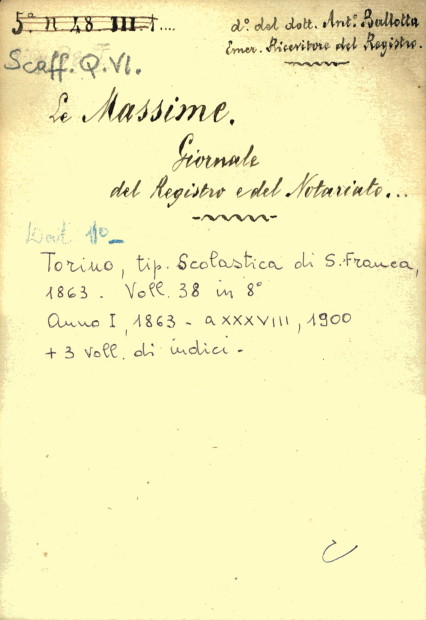 5° n 48 III.1....
d°. del dott. Ant.° Ballotta
Emer. Ricevitore del Registro.
Scaff. Q. VI.
Le Massime.
Giornale
del Registro e del Notariato...
Torino, tip. Scolastica di S. Franca,
1863. Voll. 38 in 8°
Anno I, 1863 - a XXXVIII, 1900
+ 3 voll. di indici.